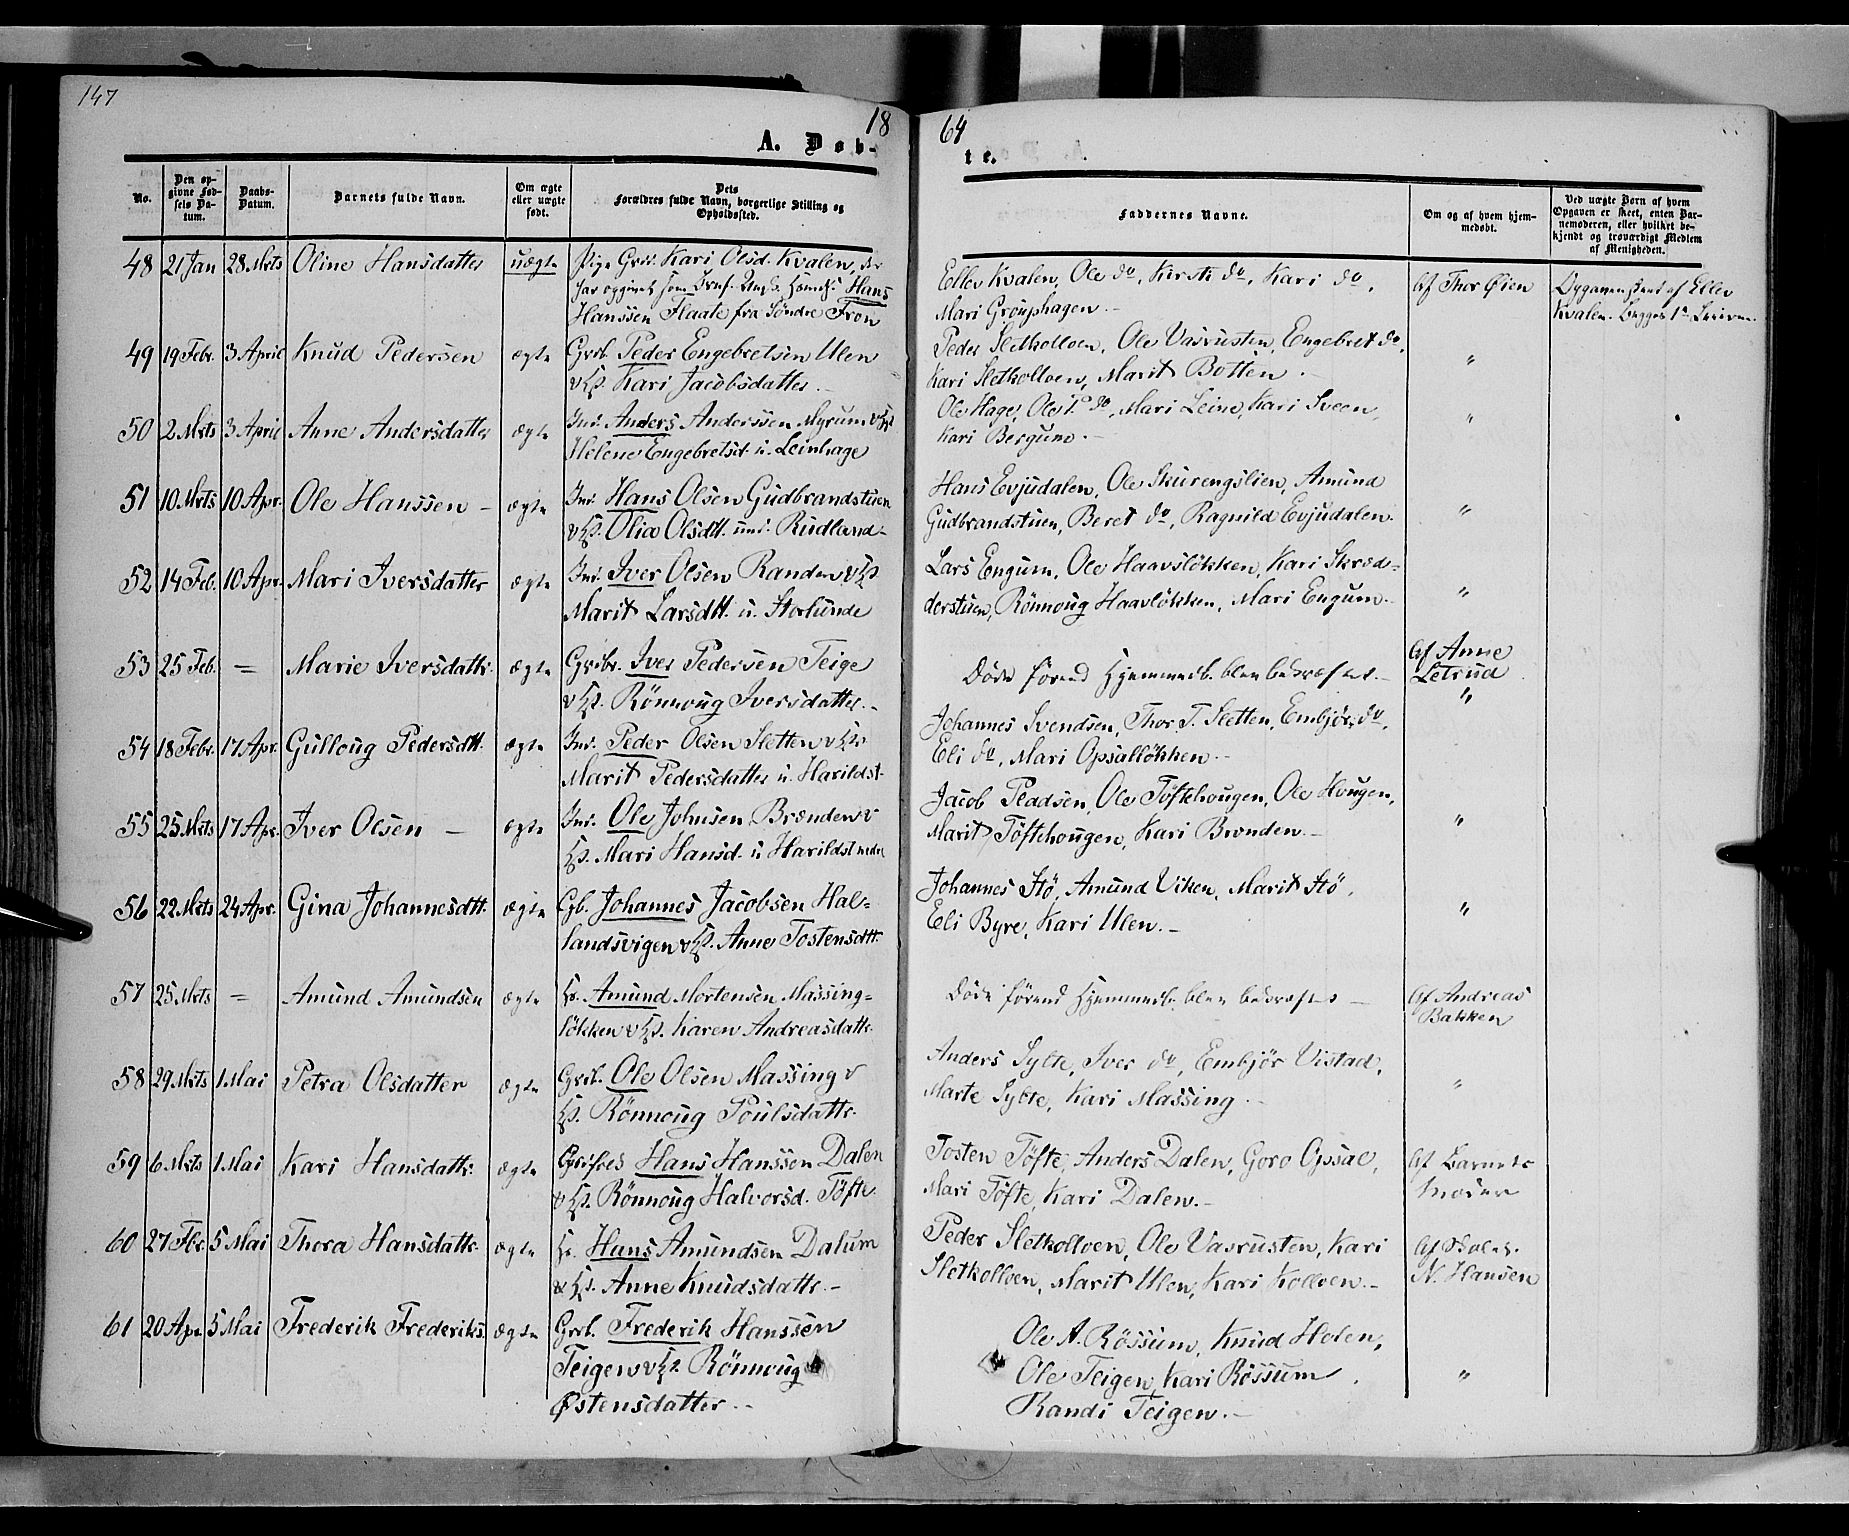 147
18 64
A. Døb- te.
No. Den opgivne Fødsels Datum. Daabs-Datum. Barnets fulde Navn. Om ægte eller uægte født. Dets Forældres fulde Navn, borgerlige Stilling og Opholdssted. Faddernes Navne. Om og af hvem hjemmedøbt. Ved uægte Børn af hvem Opgaven er skeet, enten Barnemoderen, eller hvilket bekjendt og troværdigt Medlem af Menigheden.
48 21 Jan 28 Mrts Oline Hansdatter uægte Pige Kari Olsd. Kvalen, der
har opgivet som Hans
Hanssen Flaate fra Søndre Fron
Ellev Kvalen, Ole do, Kirsti do, Kari do,
Mari Grouphagen.-
Af Thor Øien
Opgaven af Ellev
Kvalen.
49 19 Febr. 3 April Knud Pedersen ægte Grb. Peder Engebretsen Ulen
v Hs. Kari Jacobsdatter.-
Peder Sletkolloen, Ole Vasrusten, Engebret do,
Kari Sletkolloen, Marit Botten.-
"
50 2 Mrts 3 April Anne Andersdatter ægte Ind. Anders Anderssen Myrum v Hs
Helene Engebretsd. u. Leinhage
Ole Hage, Ole T. do, Mari Leine, Kari Sveen,
Kari Bergum.-
"
51 10 Mrts 10 Apr. Ole Hanssen - ægte Ind. Hans Olsen Gudbrandstuen
v Hs. Olia Olsdtt. und. Rudland-
Hans Evjudalen, Ole Skurengslien, Amund
Gudbrandstuen, Beret do, Ragnild Evjudalen.
"
52 14 Feb. 10 Apr. Mari Iversdatter ægte Ind. Iver Olsen Randen v Hs
Marit Larsdtt. u. Storlunde
Lars Engum, Ole Haavsløkken, Kari Skræd-
derstuen, Rönnoug Haavløkken, Mari Engum.-
"
53 25 Feb. = Marie Iversdattr. ægte Grdbr. Iver Pedersen Teige
v Hs. Rönnoug Iversdatter.-
Døde førend Hjemmedb. blev bekræftet.-
Af Anne
Letrud
54 18 Febr. 17 Apr. Gulloug Pedersdtt. ægte Ind. Peder Olsen Sletten v Hs
Marit Pedersdatter u. Harildst.
Johannes Svendsen, Thor T. Sletten, Embjør do,
Eli do, Mari Opsalløkken.-
"
55 25 Mrts 17 Apr. Iver Olsen - ægte Ind. Ole Johnsen Brænden v
Hs. Mari Hansd. u Harildst nedre
Jacob Pladsen, Ole Töftehougen, Ole Hougen,
Marit Töftehougen, Kari Brænden.-
"
56 22 Mrts 24 Apr. Gina Johannesdtt. ægte Gb. Johannes Jacobsen Hal-
landsvigen v Hs. Anne Tostensdtt.
Johannes Stö, Amund Viken, Marit Stö,
Eli Byre, Kari Ulen.-
"
57 25 Mrts = Amund Amundsen ægte Hs. Amund Mortensen Massing-
løkken v Hs. Karen Andreasdattr.
Døde førend Hjemmedb. blev bekræftet -
Af Andreas
Bakken
58 29 Mrts 1 Mai Petra Olsdatter ægte Grdb. Ole Olsen Massing v
Hs. Rönnoug Poulsdattr.
Anders Sylte, Iver do, Embjør Vistad,
Marte Sylte, Kari Massing.-
"
59 6 Mrts 1 Mai Kari Hansdattr. ægte Hans Hanssen Dalen
v Hs. Rönnoug Halvorsd. Töfte
Tosten Töfte, Anders Dalen, Goro Opsal,
Mari Töfte, Kari Dalen.-
Af Barnets
Moder
60 27 Fbr. 5 Mai Thora Hansdattr. ægte Hs. Hans Amundsen Dalum
v Hs. Anne Knudsdattr.-
Peder Sletkolloen, Ole Vasrusten, Kari
Sletkolloen, Marit Ulen, Kari Kolloen.-
Af Skolel.
N. Hansen
61 20 Apr. 5 Mai Frederik Frederiks. ægte Grb. Frederik Hanssen
Teigen v Hs. Rönnoug
Østensdatter.-
Ole A. Rössum, Knud Holen,
Ole Teigen, Kari Rössum
Randi Teigen.-
"